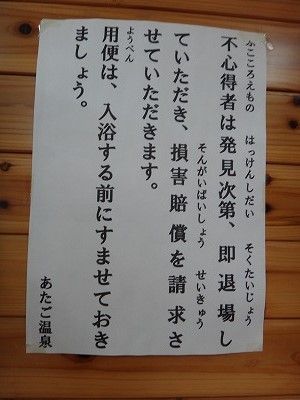 ふこころえもの はっけんしだい そくたいじょう
不心得者は発見次第、即退場し
ていただき、損害賠償を請求さ
そんがいばいしょう せいきゅう
せていただきます。
ようべん
用便は、入浴する前にすませておき
ましょう。
あたご温泉